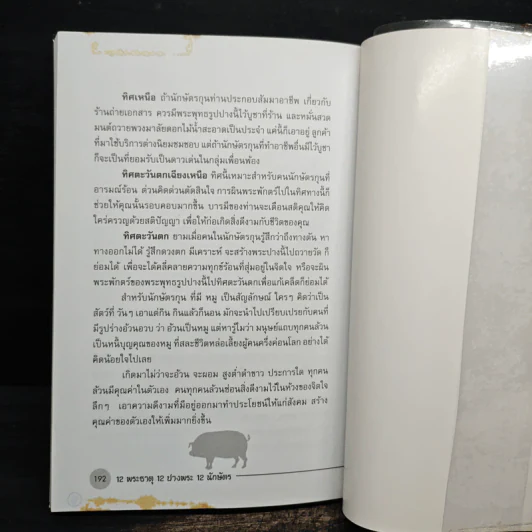 ทิศเหนือ ถ้านักษัตรกุนท่านประกอบสัมมาอาชีพ เกี่ยวกับ
ร้านถ่ายเอกสาร ควรมีพระพุทธรูปปางนี้ไว้บูชาที่ร้าน และหมั่นสวด
มนต์ถวายพวงมาลัยดอกไม้น้ำสะอาดเป็นประจำ แค่นี้ก็เอาอยู่ ลูกค้า
ที่มาใช้บริการต่างนิยมชมชอบ แต่ถ้านักษัตรกุนที่ทำอาชีพอื่นมีไว้บูชา
ก็จะเป็นที่ยอมรับเป็นดาวเด่นในกลุ่มเพื่อนพ้อง
ทิศตะวันตกเฉียงเหนือ ทิศนี้เหมาะสำหรับคนนักษัตรกุนที่
อารมณ์ร้อน ด่วนคิดด่วนตัดสินใจ การผินพระพักตร์ไปในทิศทางนี้ก็
ช่วยให้คุณนั้นรอบคอบมากขึ้น บารมีของท่านจะเตือนสติคุณให้คิด
ใคร่ครวญด้วยสติปัญญา เพื่อให้ก่อเกิดสิ่งดีงามกับชีวิตของคุณ
ทิศตะวันตก ยามเมื่อคนในนักษัตรกุนรู้สึกว่าถึงทางตัน หา
ทางออกไม่ได้ รู้สึกดวงตก มีเคราะห์ จะสร้างพระปางนี้ไปถวายวัด ก็
ย่อมได้ เพื่อจะได้คลี่คลายความทุกข์ร้อนที่สุมอยู่ในจิตใจ หรือจะผิน
พระพักตร์ของพระพุทธรูปปางนี้ไปทิศตะวันตกเพื่อแก้เคล็ดก็ย่อมได้
สำหรับนักษัตรกุน ที่มี หมู เป็นสัญลักษณ์ ใครๆ คิดว่าเป็น
สัตว์ที่ วันๆ เอาแต่กิน กินแล้วก็นอน มักจะนำไปเปรียบเปรยกับคนที่
มีรูปร่างอ้วนอวบ ว่า อ้วนเป็นหมู แต่หารู้ไม่ว่า มนุษย์แถบทุกคนล้วน
เป็นหนี้บุญคุณของหมู ที่สละชีวิตหล่อเลี้ยงผู้คนครึ่งค่อนโลก อย่างได้
คิดน้อยใจไปเลย
เกิดมาไม่ว่าจะอ้วน จะผอม สูงต่ำดำขาว ประการใด ทุกคน
ล้วนมีคุณค่าในตัวเอง คนทุกคนล้วนซ่อนสิ่งดีงามไว้ในห้วงของจิตใจ
ลึกๆ เอาความดีงามที่มีอยู่ออกมาทำประโยชน์ให้แก่สังคม สร้าง
คุณค่าของตัวเองให้เพิ่มมากยิ่งขึ้น
192 12 พระธาตุ 12 ปางพระ 12 นักษัตร